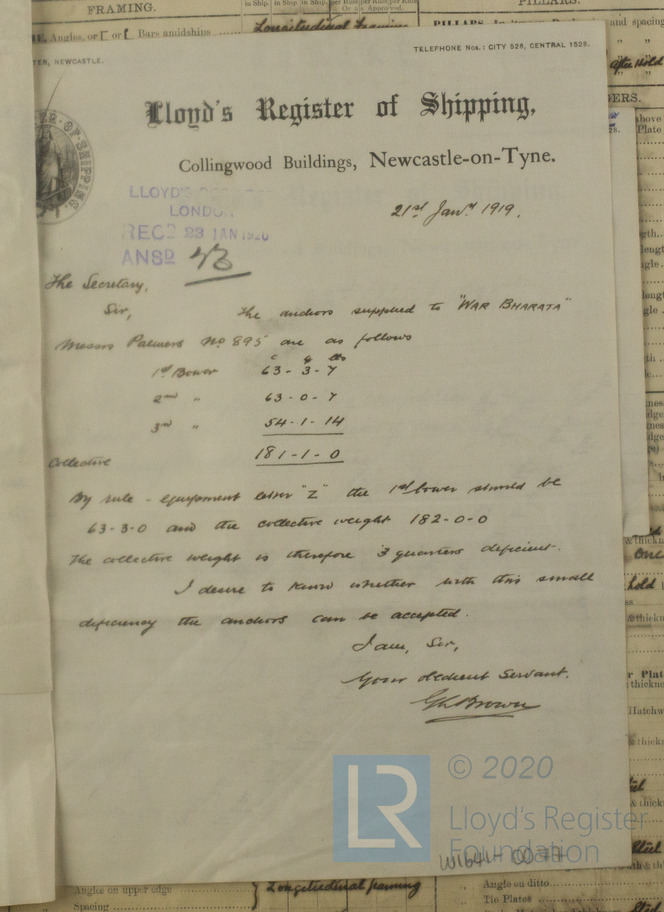 FRAMING.
PILLARS.
Angles, or [ or [ Bars amidships
Longitudinal Framing
and spacing
TELEPHONE Nos.: CITY 528, CENTRAL 1528.
NEWCASTLE.
after Hold
Lloyd's Register of Shipping,
Collingwood Buildings, Newcastle-on-Tyne.
OF SHIPPING
LLOYD'S
LONDON
REC^D 23 JAN 1920
ANS^D 43
21st Jany 1919.
The Secretary,
Sir, The anchors supplied to "WAR BHARATA"
Messrs Palmers No 895 are as follows
c q lbs
1st Bower 63-3-7
2nd " 63-0-7
3rd " 54-1-14
Collective 181-1-0
By rule - equipment letter "Z" the 1st bower should be
63-3-0 and the collective weight 182-0-0
The collective weight is therefore 3 quarters deficient.
I desire to know whether with this small
deficiency the anchors can be accepted.
I am, Sir,
Your obedient Servant.
LR
© 2020
Lloyd's Register
Foundation
Angles on upper edge
Longitudinal framing
Spacing
Angles on ditto
Tie Plates